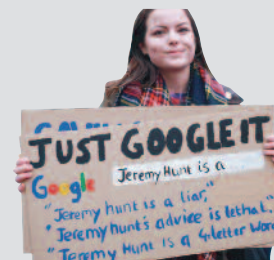 JUST GOOGLE IT
Google Jeremy Hunt is a
"Jeremy hunt is a liar,"
"Jeremy hunt's advice is lethal."
"Jeremy Hunt is a 4-letter Word